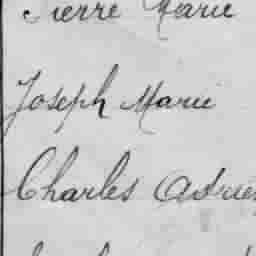 Pierre Marie
Joseph Marie
Charles Adrien